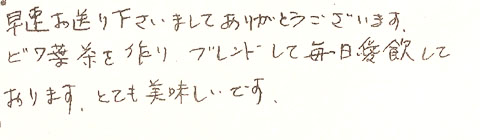 早速お送り下さいましてありがとうございます.
ビワ葉茶を作り ブレンドして毎日愛飲して
おります. とても美味しいです.